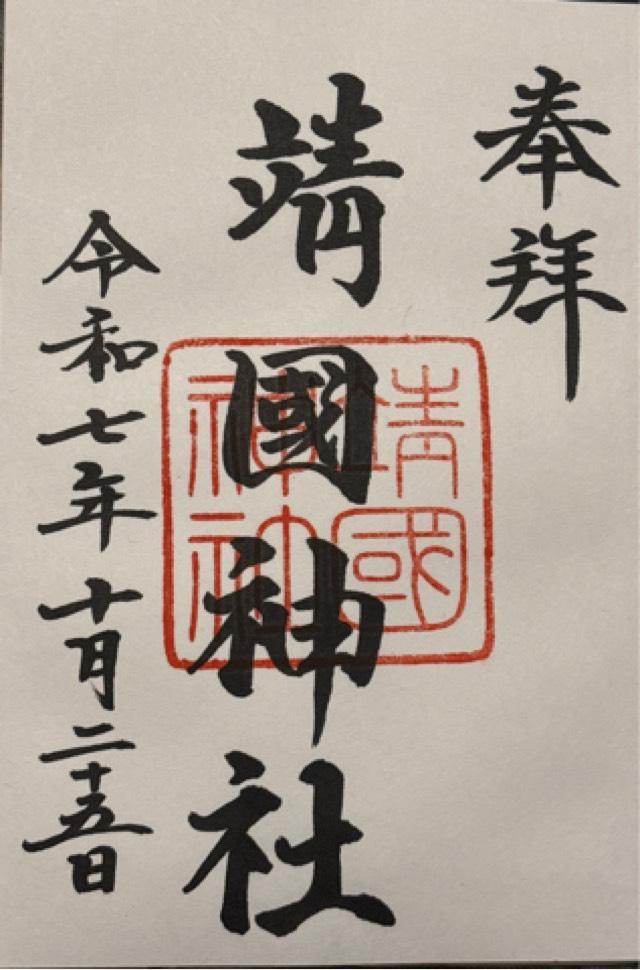 奉拝
靖國神社
靖國
神社
令和七年十月二十五日